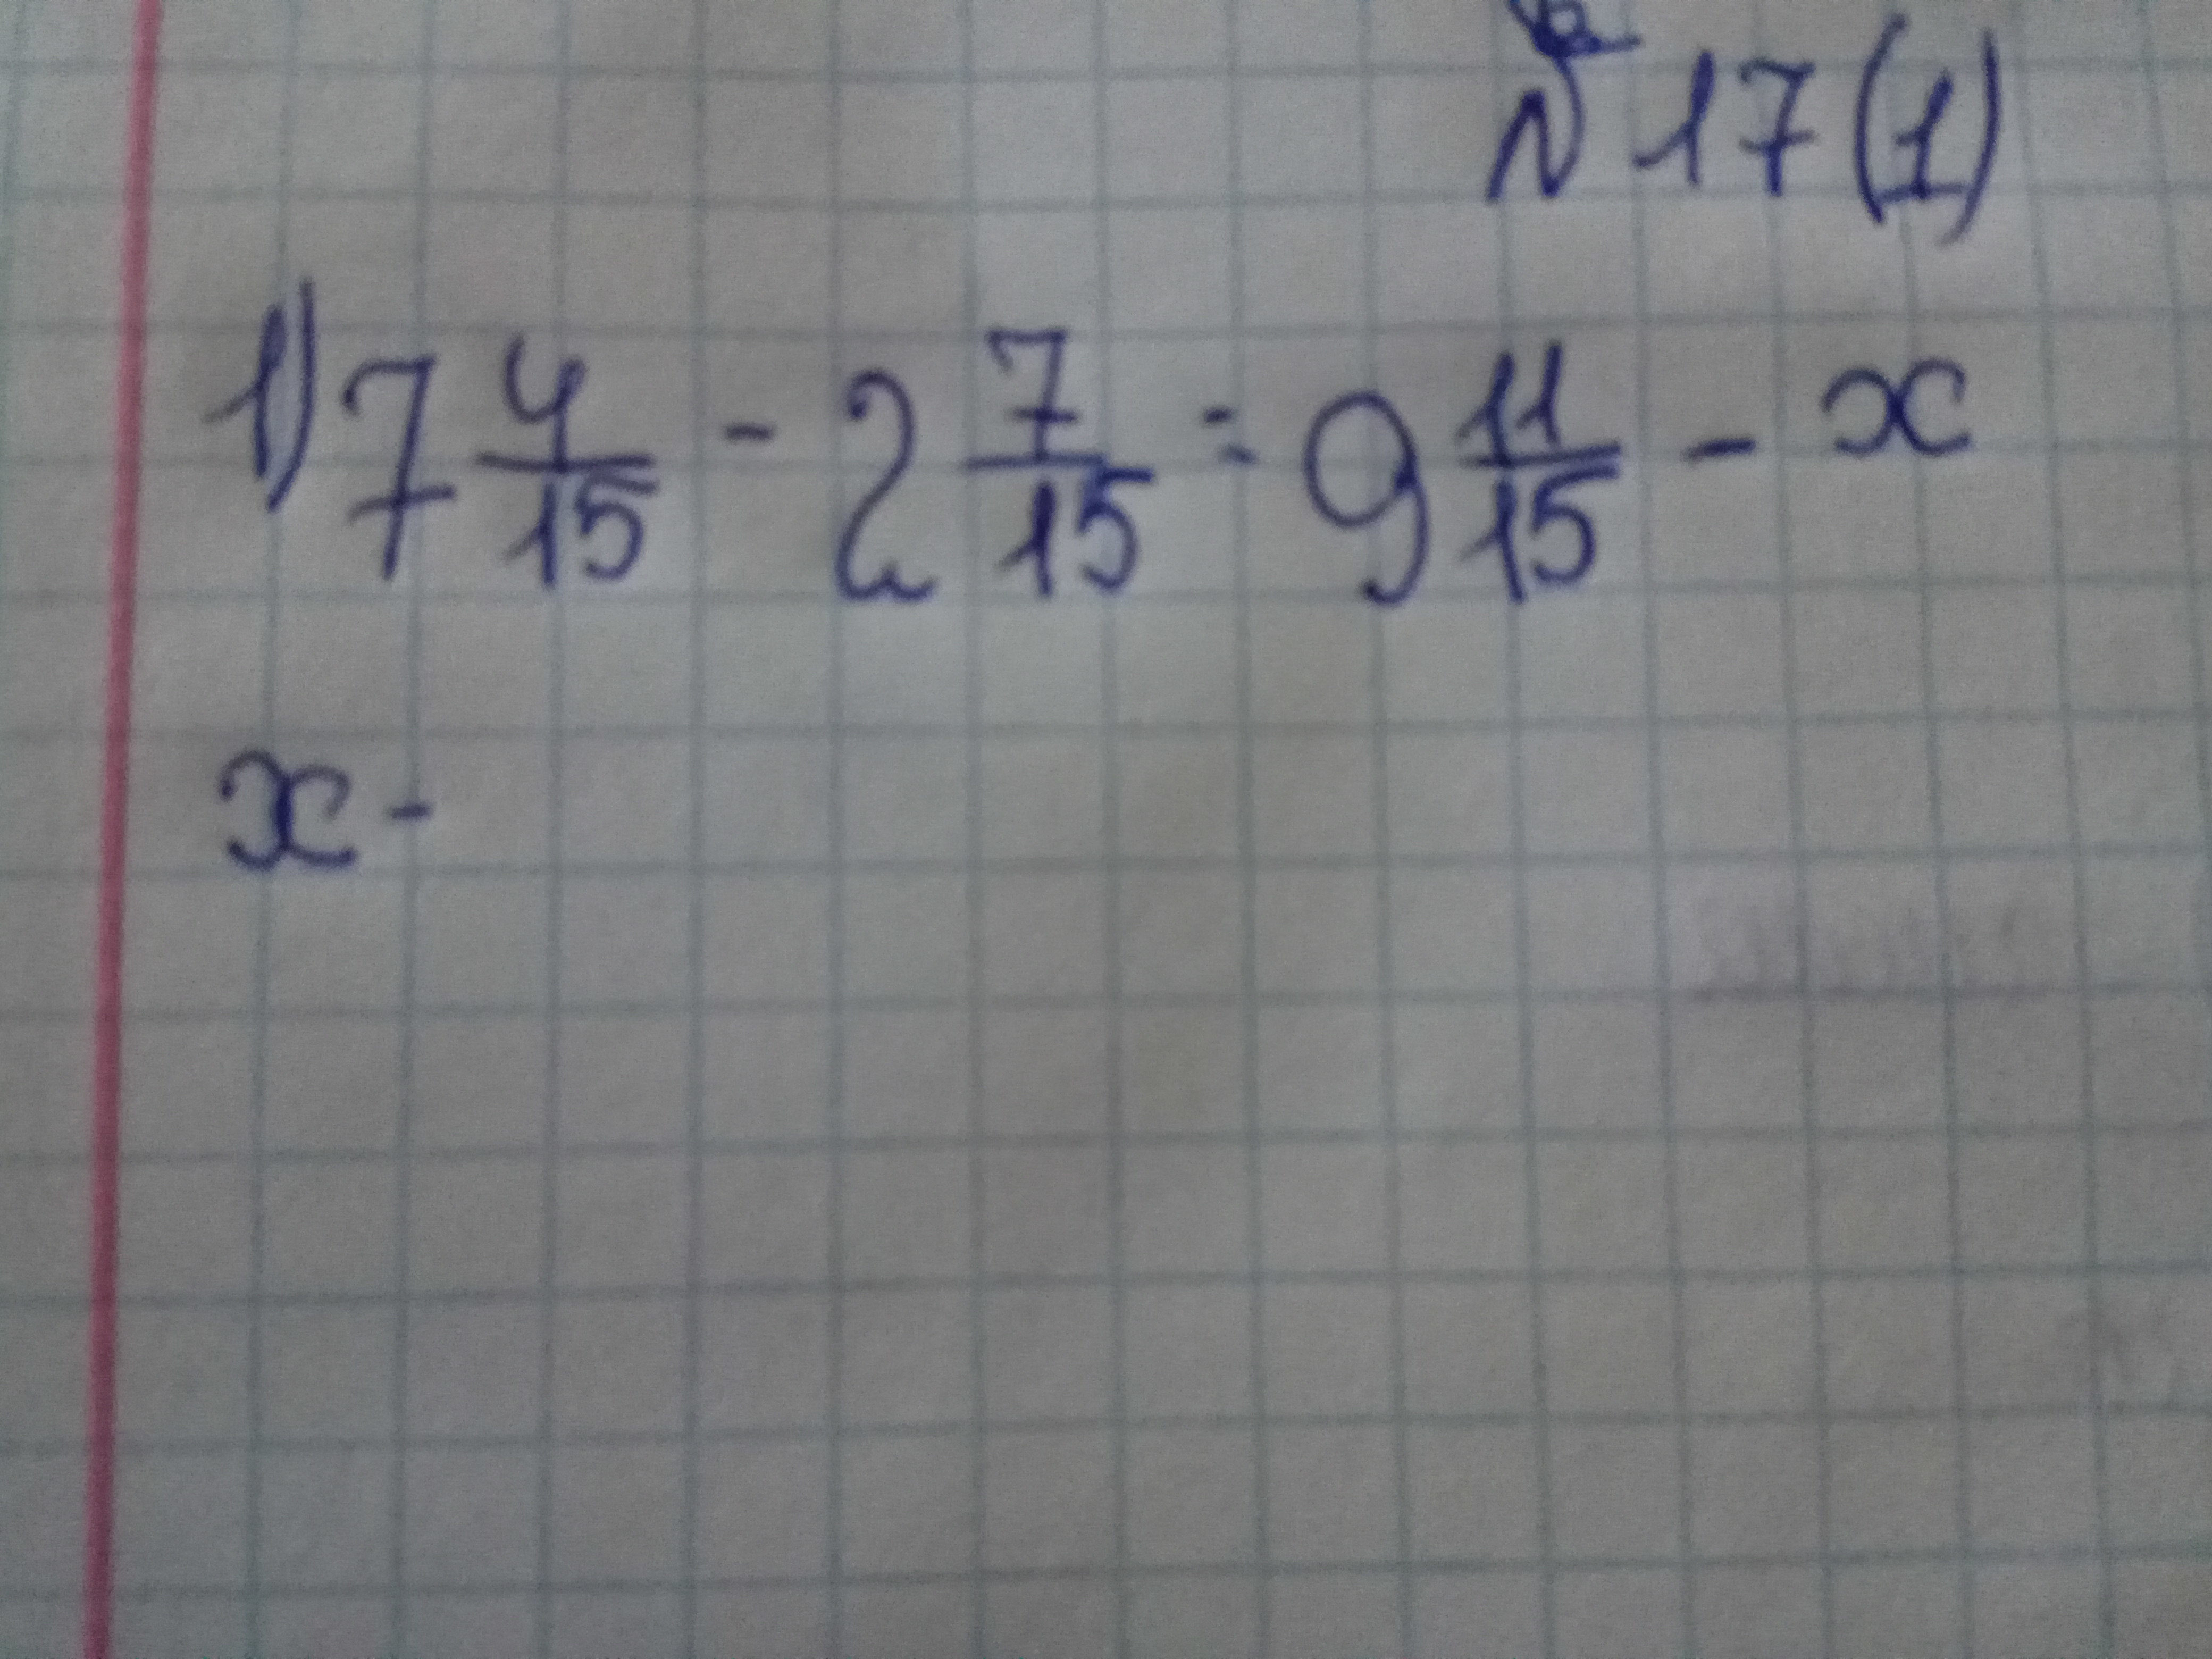 № 17 (1)
1) 7 4/15 - 2 7/15 = 9 11/15 - x
x -